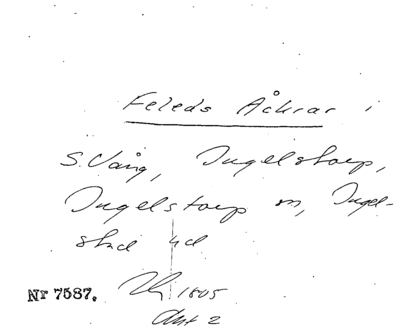 Feleds Åkrar i
S. Vång, Ingelstorp,
Ingelstorp sn, Ingel-
stad hd
Nr 7587. 1805
Akt 2